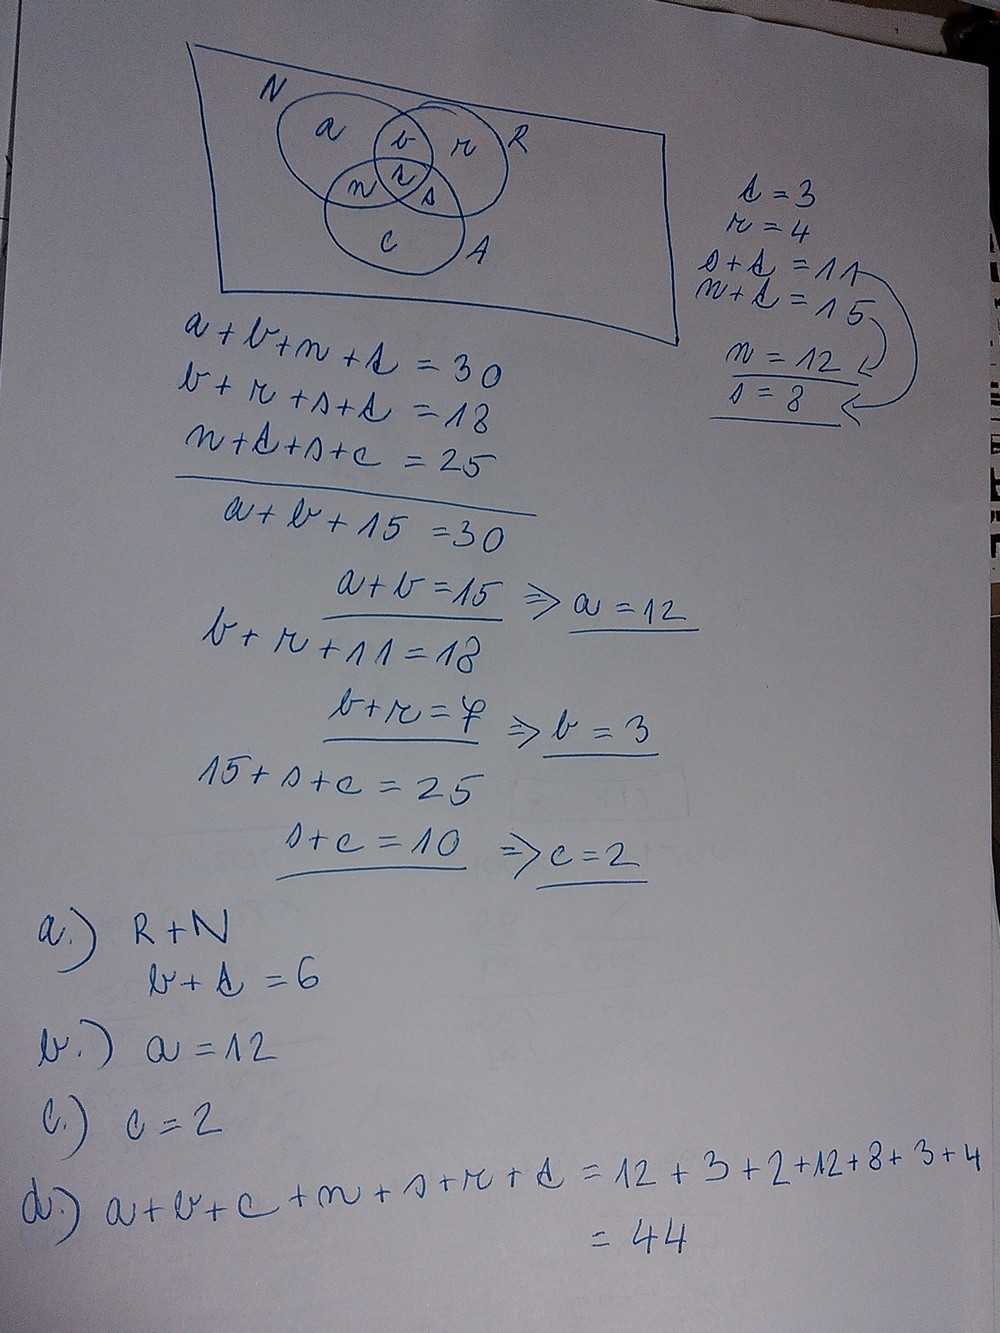 N
a
b
r
R
n
t
s
c
A
t = 3
r = 4
s + t = 11
n + t = 15
n = 12
s = 8
a + b + n + t = 30
b + r + s + t = 18
n + t + s + c = 25
a + b + 15 = 30
a + b = 15 ⇒ a = 12
b + r + 11 = 18
b + r = 7 ⇒ b = 3
15 + s + c = 25
s + c = 10 ⇒ c = 2
a.) R + N
b + t = 6
b.) a = 12
c.) c = 2
d.) a + b + c + n + s + r + t = 12 + 3 + 2 + 12 + 8 + 3 + 4
= 44